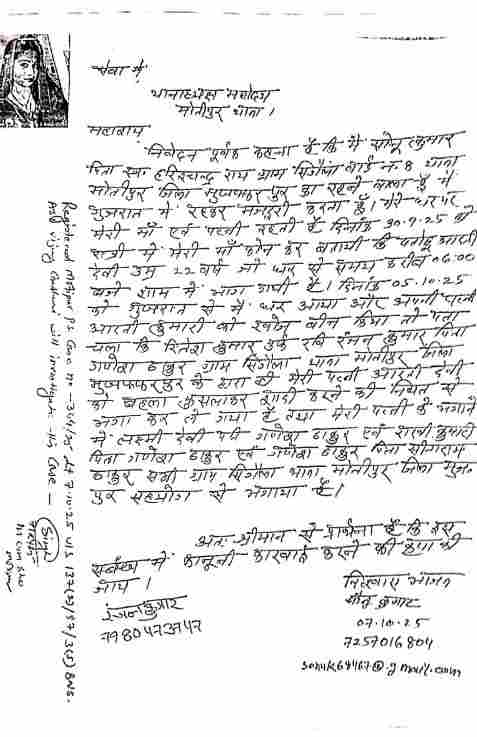 सेवा में,
थानाध्यक्ष महोदय
मोतीपुर थाना।
महाशय,
निवेदन पूर्वक कहना है कि मैं सोनू कुमार
पिता स्व० हरिश्चन्द्र राय ग्राम सिंगैला वार्ड न० 8 थाना
मोतीपुर जिला मुजफ्फरपुर का रहने वाला हूँ मैं
गुजरात में रहकर मजदूरी करता हूँ। मेरे घर पर
मेरी माँ एवं पत्नी रहती है दिनांक 30.9.25 को
रात्री में मेरी माँ फोन कर बतायी कि पतोहू आरती
देवी उम्र 22 वर्ष जो घर से समय करीब 06:00
बजे शाम में भाग गयी है। दिनांक 05.10.25
को गुजरात से मैं घर आया और अपनी पत्नी
आरती कुमारी को खोज बीन किया तो पता
चला कि रितेश कुमार उर्फ रवि रंमन कुमार पिता
गणेश ठाकुर ग्राम सिंगैला थाना मोतीपुर जिला
मुजफ्फरपुर के द्वारा की मेरी पत्नी आरती देवी
को बहला फुसलाकर शादी करने की नियत से
भगा कर ले गया है तथा मेरी पत्नी के भगाने
में लक्ष्मी देवी पति गणेश ठाकुर एवं कुमारी
पिता गणेश ठाकुर एवं गणेश ठाकुर पिता सीताराम
ठाकुर सभी ग्राम सिंगैला थाना मोतीपुर जिला मुज०
पुर सहयोग से भगाया है।
अतः श्रीमान से प्रार्थना है कि इस
सबंध्य में कानूनी कारवाई करने की कृपा की
जाय।
रंजन कुमार
7980473747
विश्वास भाजन
सोनू कुमार
07.10.25
7257016804
sonuk68467@gmail.com
Registered Motipur P.S Case no - 364/25 dt 7.10.25 U/S 137(2)/87/3(5) BNS.
ASI Vijay will investigate this Case —